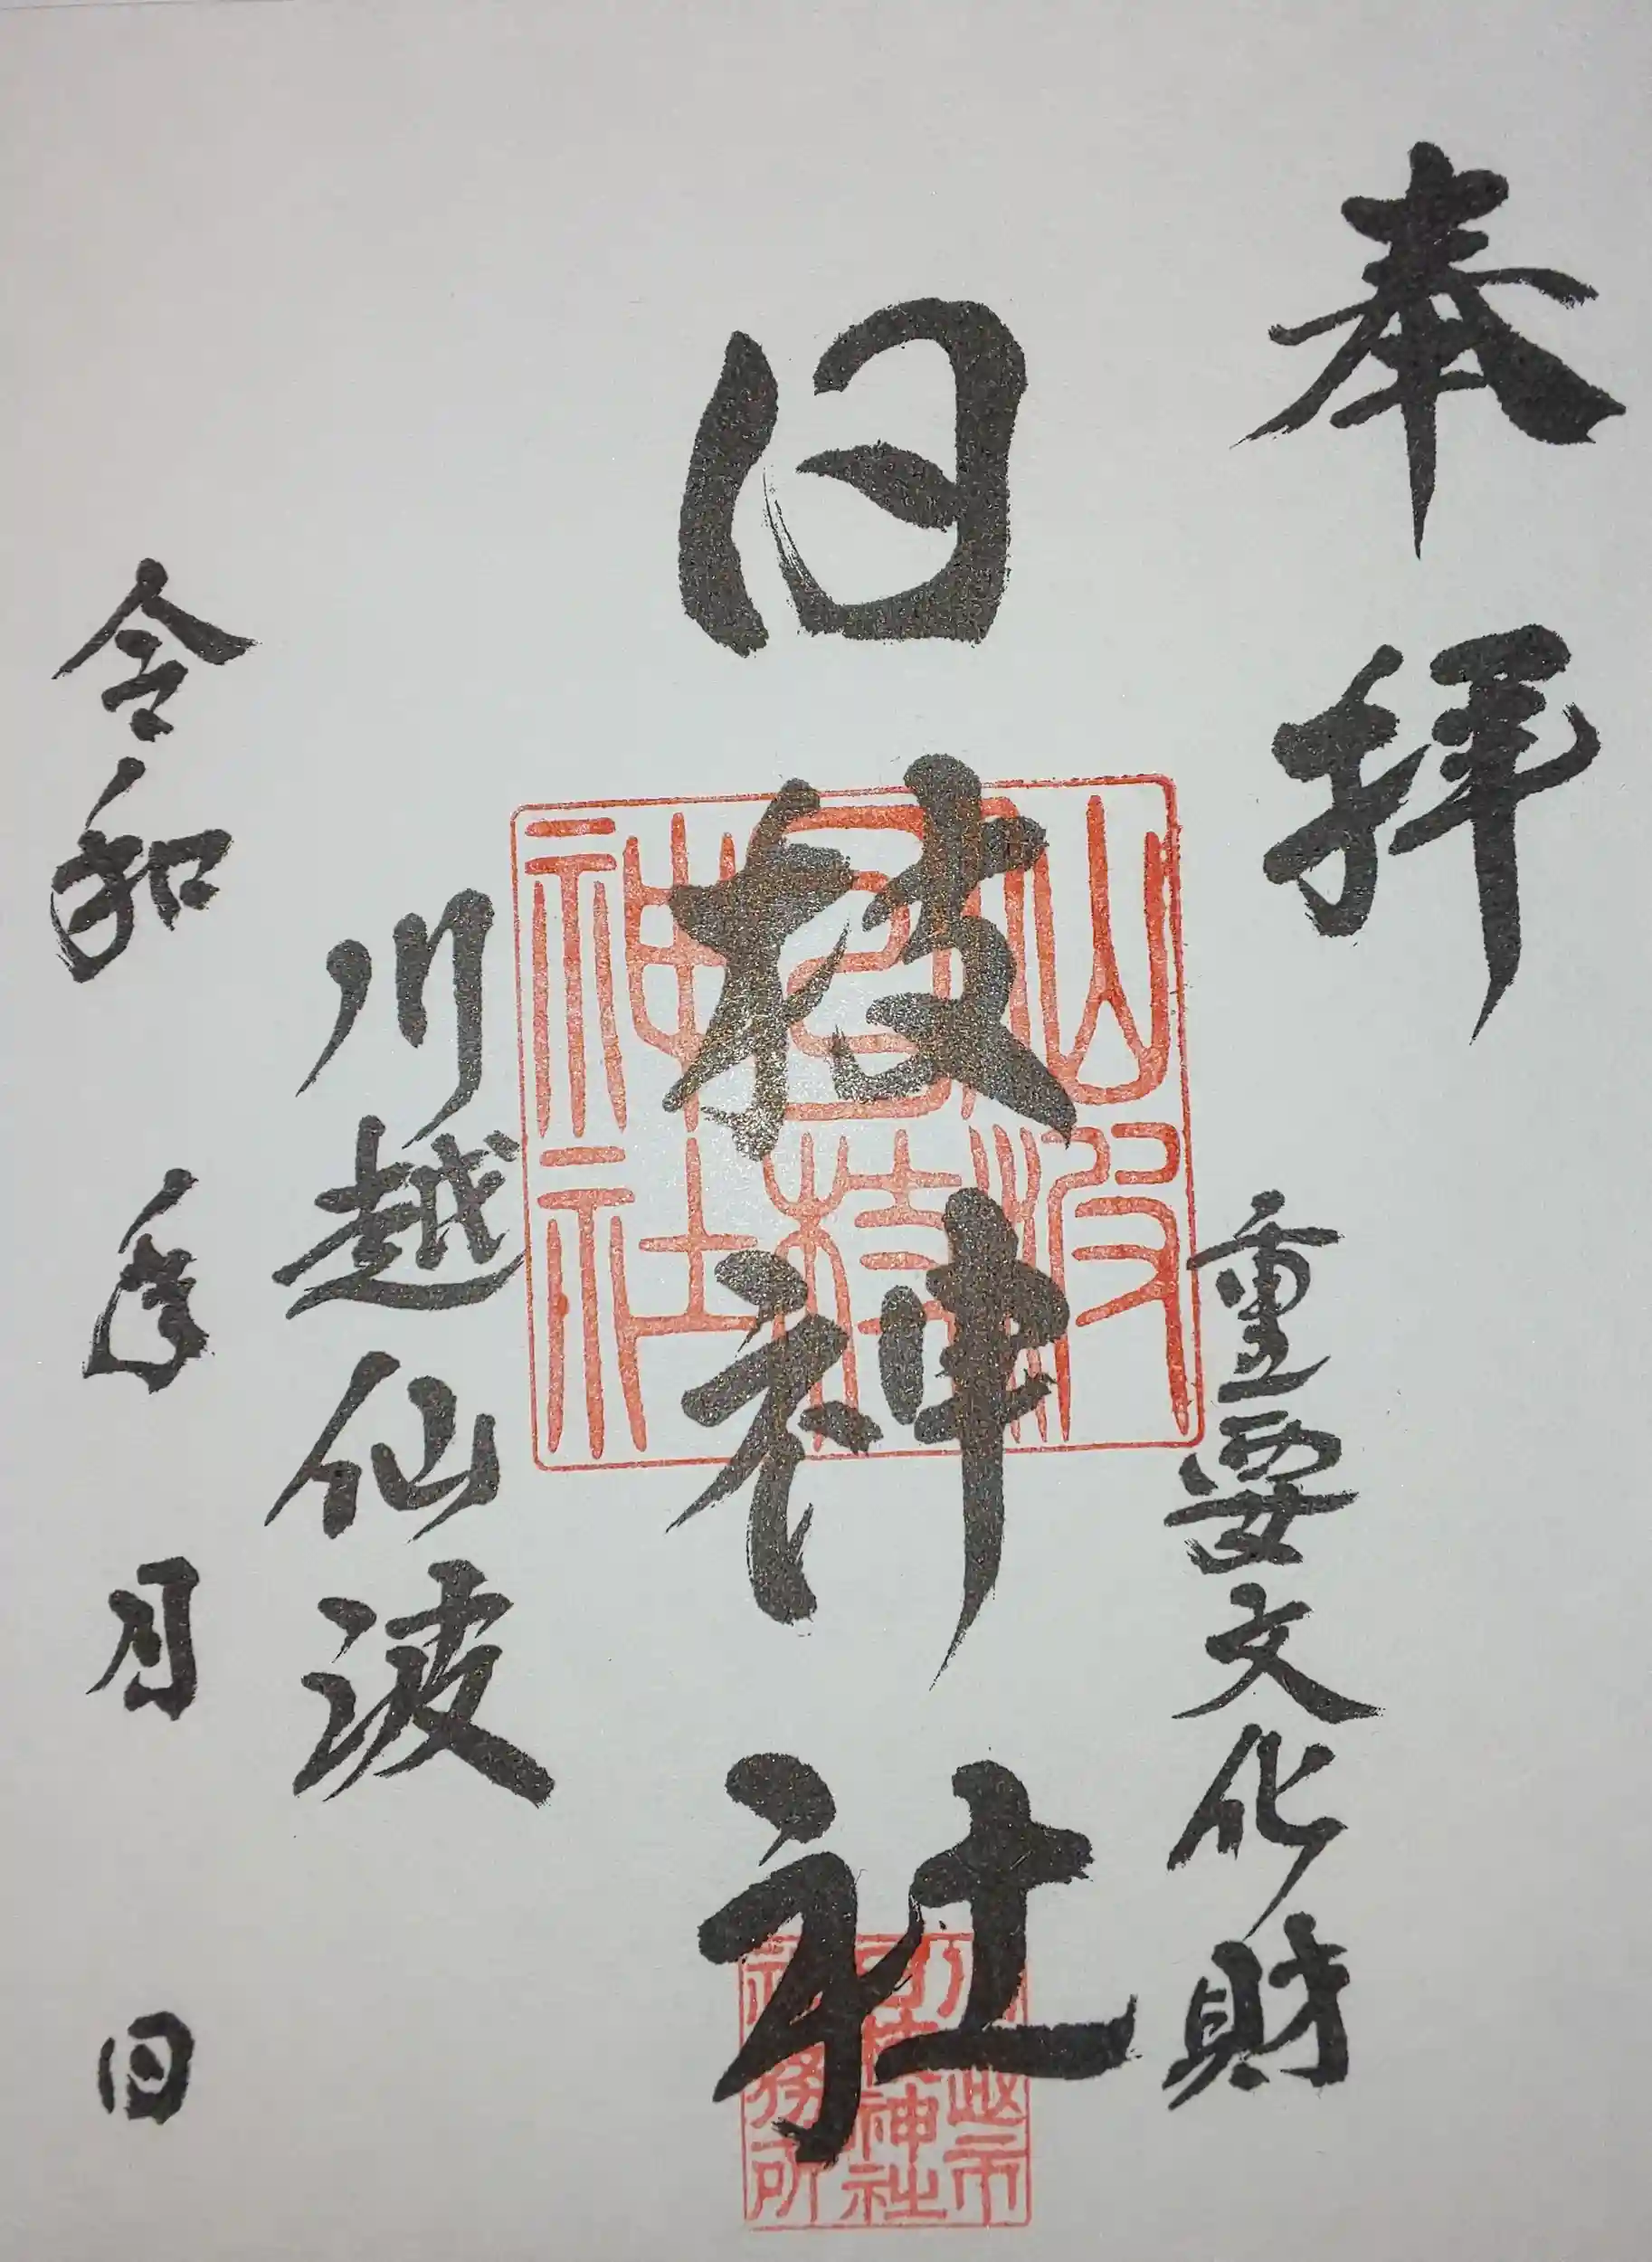 奉拝
重要文化財
日枝神社
仙波
日枝
神社
川越市
日枝神社
社務所
川越仙波
令和 年 月 日